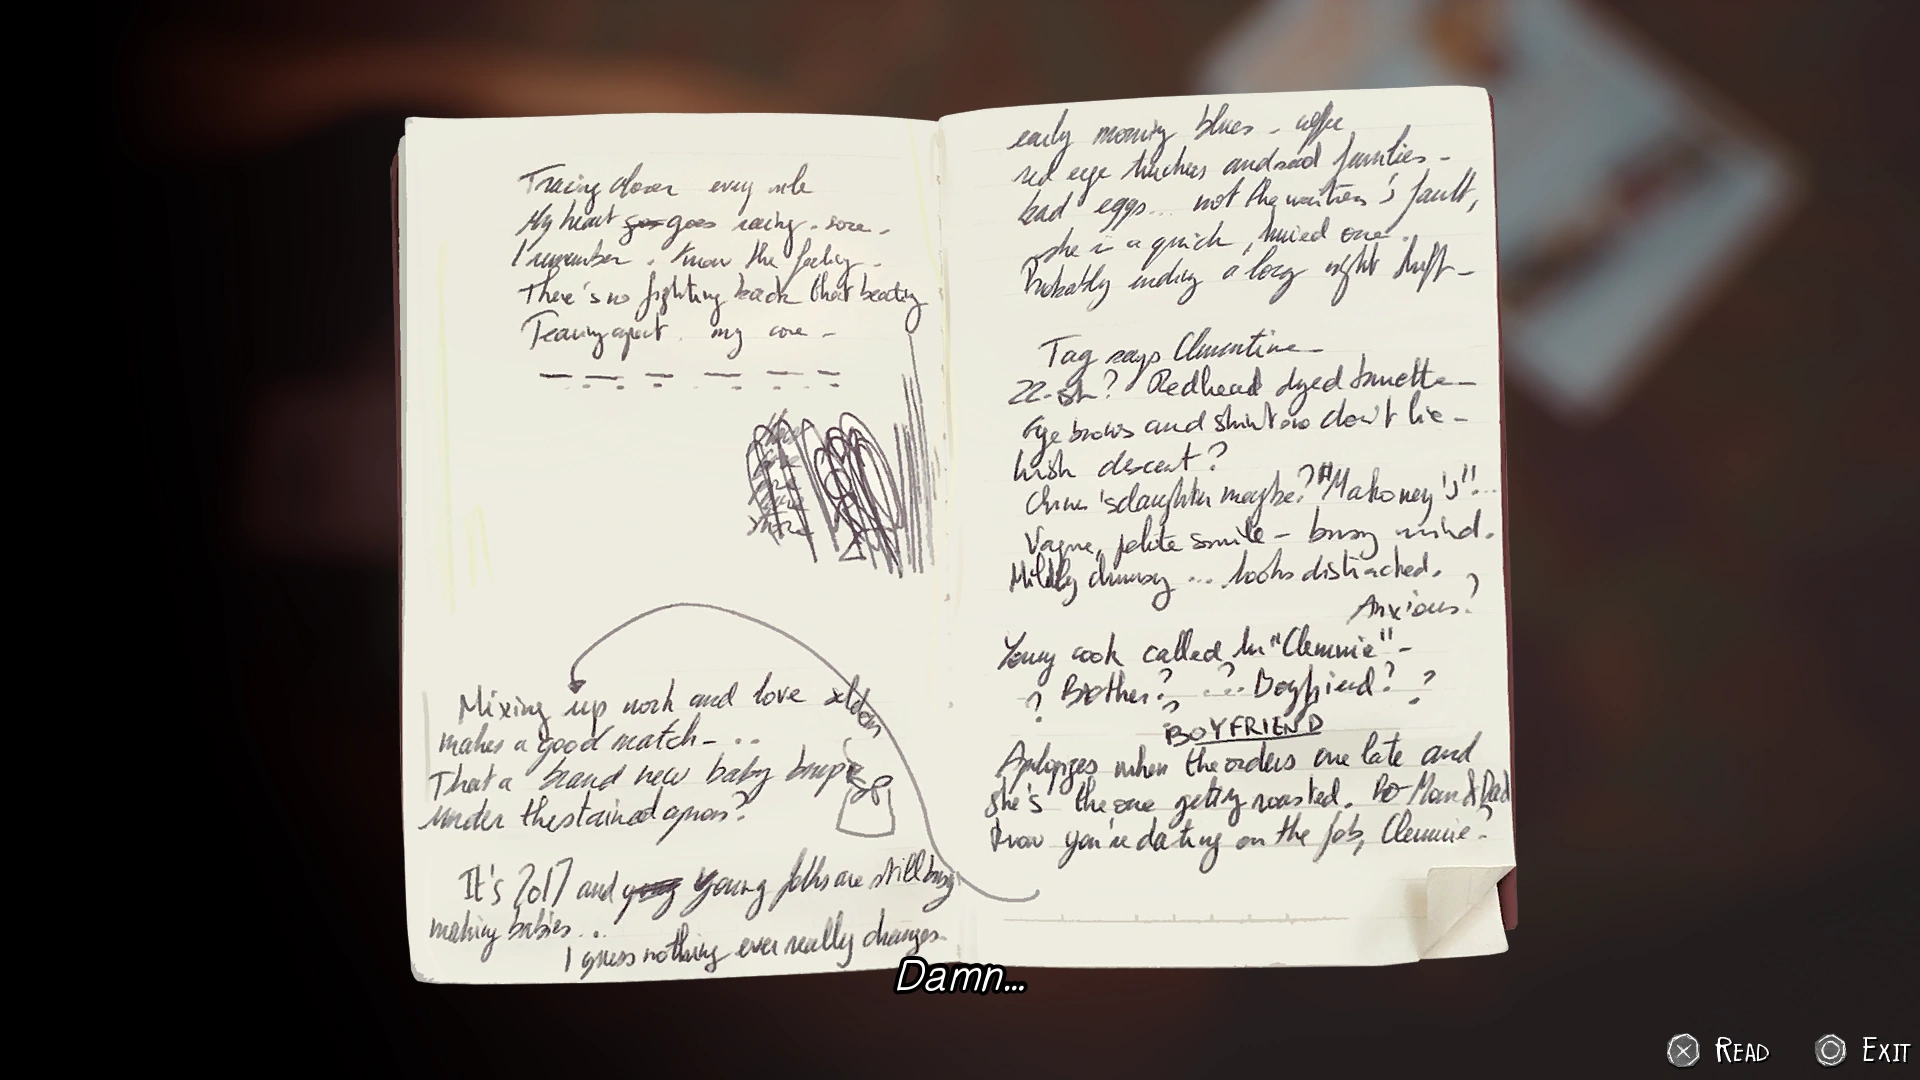 Tracing closer every mile
My heart goes goes racing. sore.
I remember. Know the feeling.
There's no fighting back that beating
Tearing apart. my core -
Mixing up work and love seldom
makes a good match - ...
That a brand new baby bump
under the stained apron?
It's 2017 and young Young folks are still busy
making babies...
I guess nothing ever really changes.
early morning blues - coffee
red eye truckers and sad families -
bad eggs... not the waitress's fault,
she is a quick, one.
Probably ending a long night shift -
Tag says Clementine -
22-ish? Redhead dyed brunette -
Eye brows and skin too don't lie -
Irish descent?
Owner's daughter maybe? "Mahoney's"...
Vague, polite smile - busy mind.
Mildly clumsy ... looks distracted.
Anxious?
Young cook called her "Clemmie" -
? Brother? ...? Boyfriend? ?
? BOYFRIEND
Apologizes when the orders are late and
she's the one getting roasted. Do Mom & Dad
know you're dating on the job, Clemmie?
Damn...
READ
EXIT